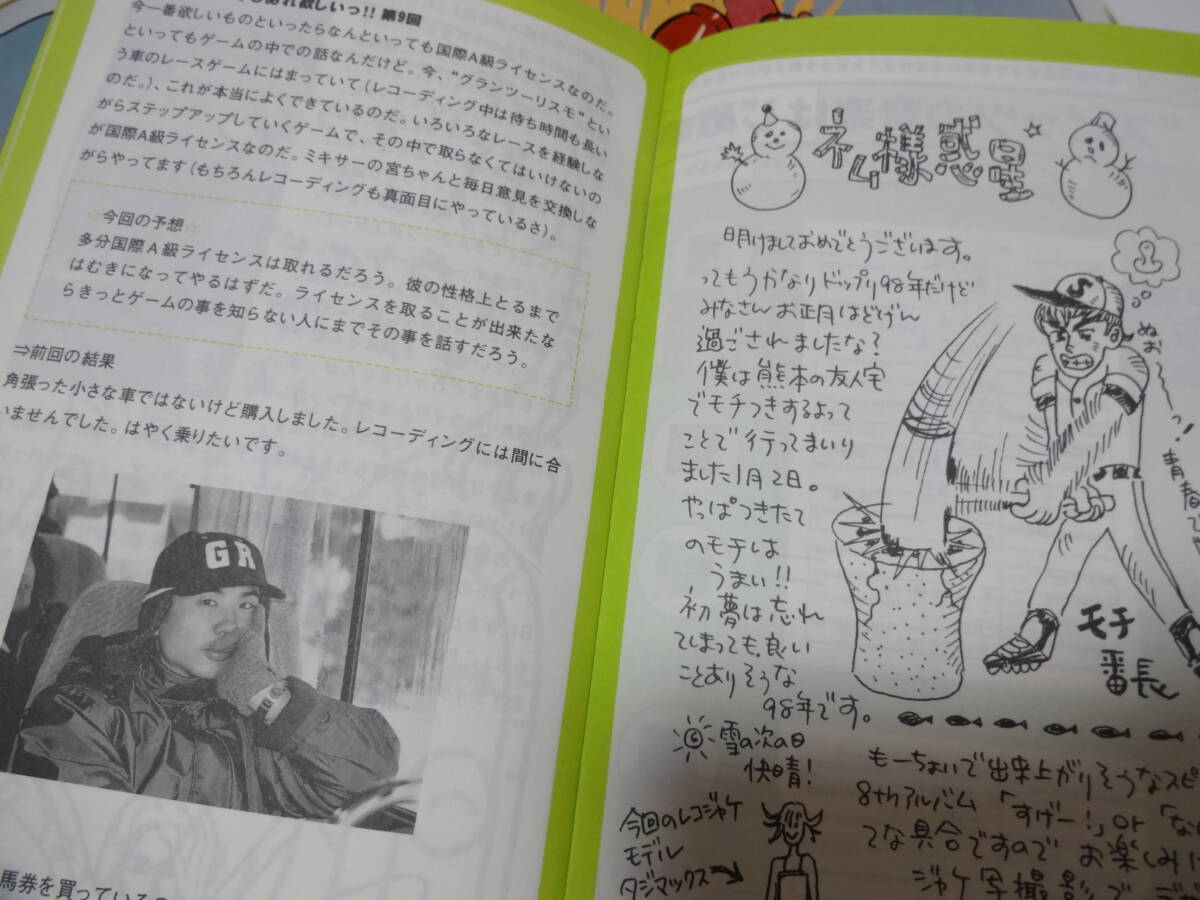 あれ欲しいっ!! 第9回
今一番欲しいものといったらなんといっても国際A級ライセンスなのだ。
といってもゲームの中での話なんだけど。今、"グランツーリスモ"とい
う車のレースゲームにはまっていて(レコーディング中は待ち時間も長い
のだ。)、これが本当によくできているのだ。いろいろなレースを経験しな
がらステップアップしていくゲームで、その中で取らなくてはいけないの
が国際A級ライセンスなのだ。ミキサーの宮ちゃんと毎日意見を交換しな
がらやってます(もちろんレコーディングも真面目にやっているさ)。
☆今回の予想☆
多分国際A級ライセンスは取れるだろう。彼の性格上とるまで
はむきになってやるはずだ。ライセンスを取ることが出来たな
らきっとゲームの事を知らない人にまでその事を話すだろう。
⇒前回の結果
角張った小さな車ではないけど購入しました。レコーディングには間に合
いませんでした。はやく乗りたいです。
GR
馬券を買っている
ネム様惑星
明けましておめでとうございます。
ってもうかなりドップリ98年だけど
みなさんお正月はどげん
過ごされましたな?
僕は熊本の友人宅
でモチつきするよって
ことで行ってまいり
ました1月2日。
やっぱつきたて
のモチは
うまい!!
初夢は忘れ
てしまっても、良い
ことありそうな
98年です。
S
ぬお〜っ!
青春
モチ
番長
雪の次の日
快晴!
今回のレコジャケ
モデル
タジマックス→
もーちょいで出来上がりそうなスピ
8thアルバム「すげー!」or「な
てな具合ですので お楽しみに
ジャケ写撮影